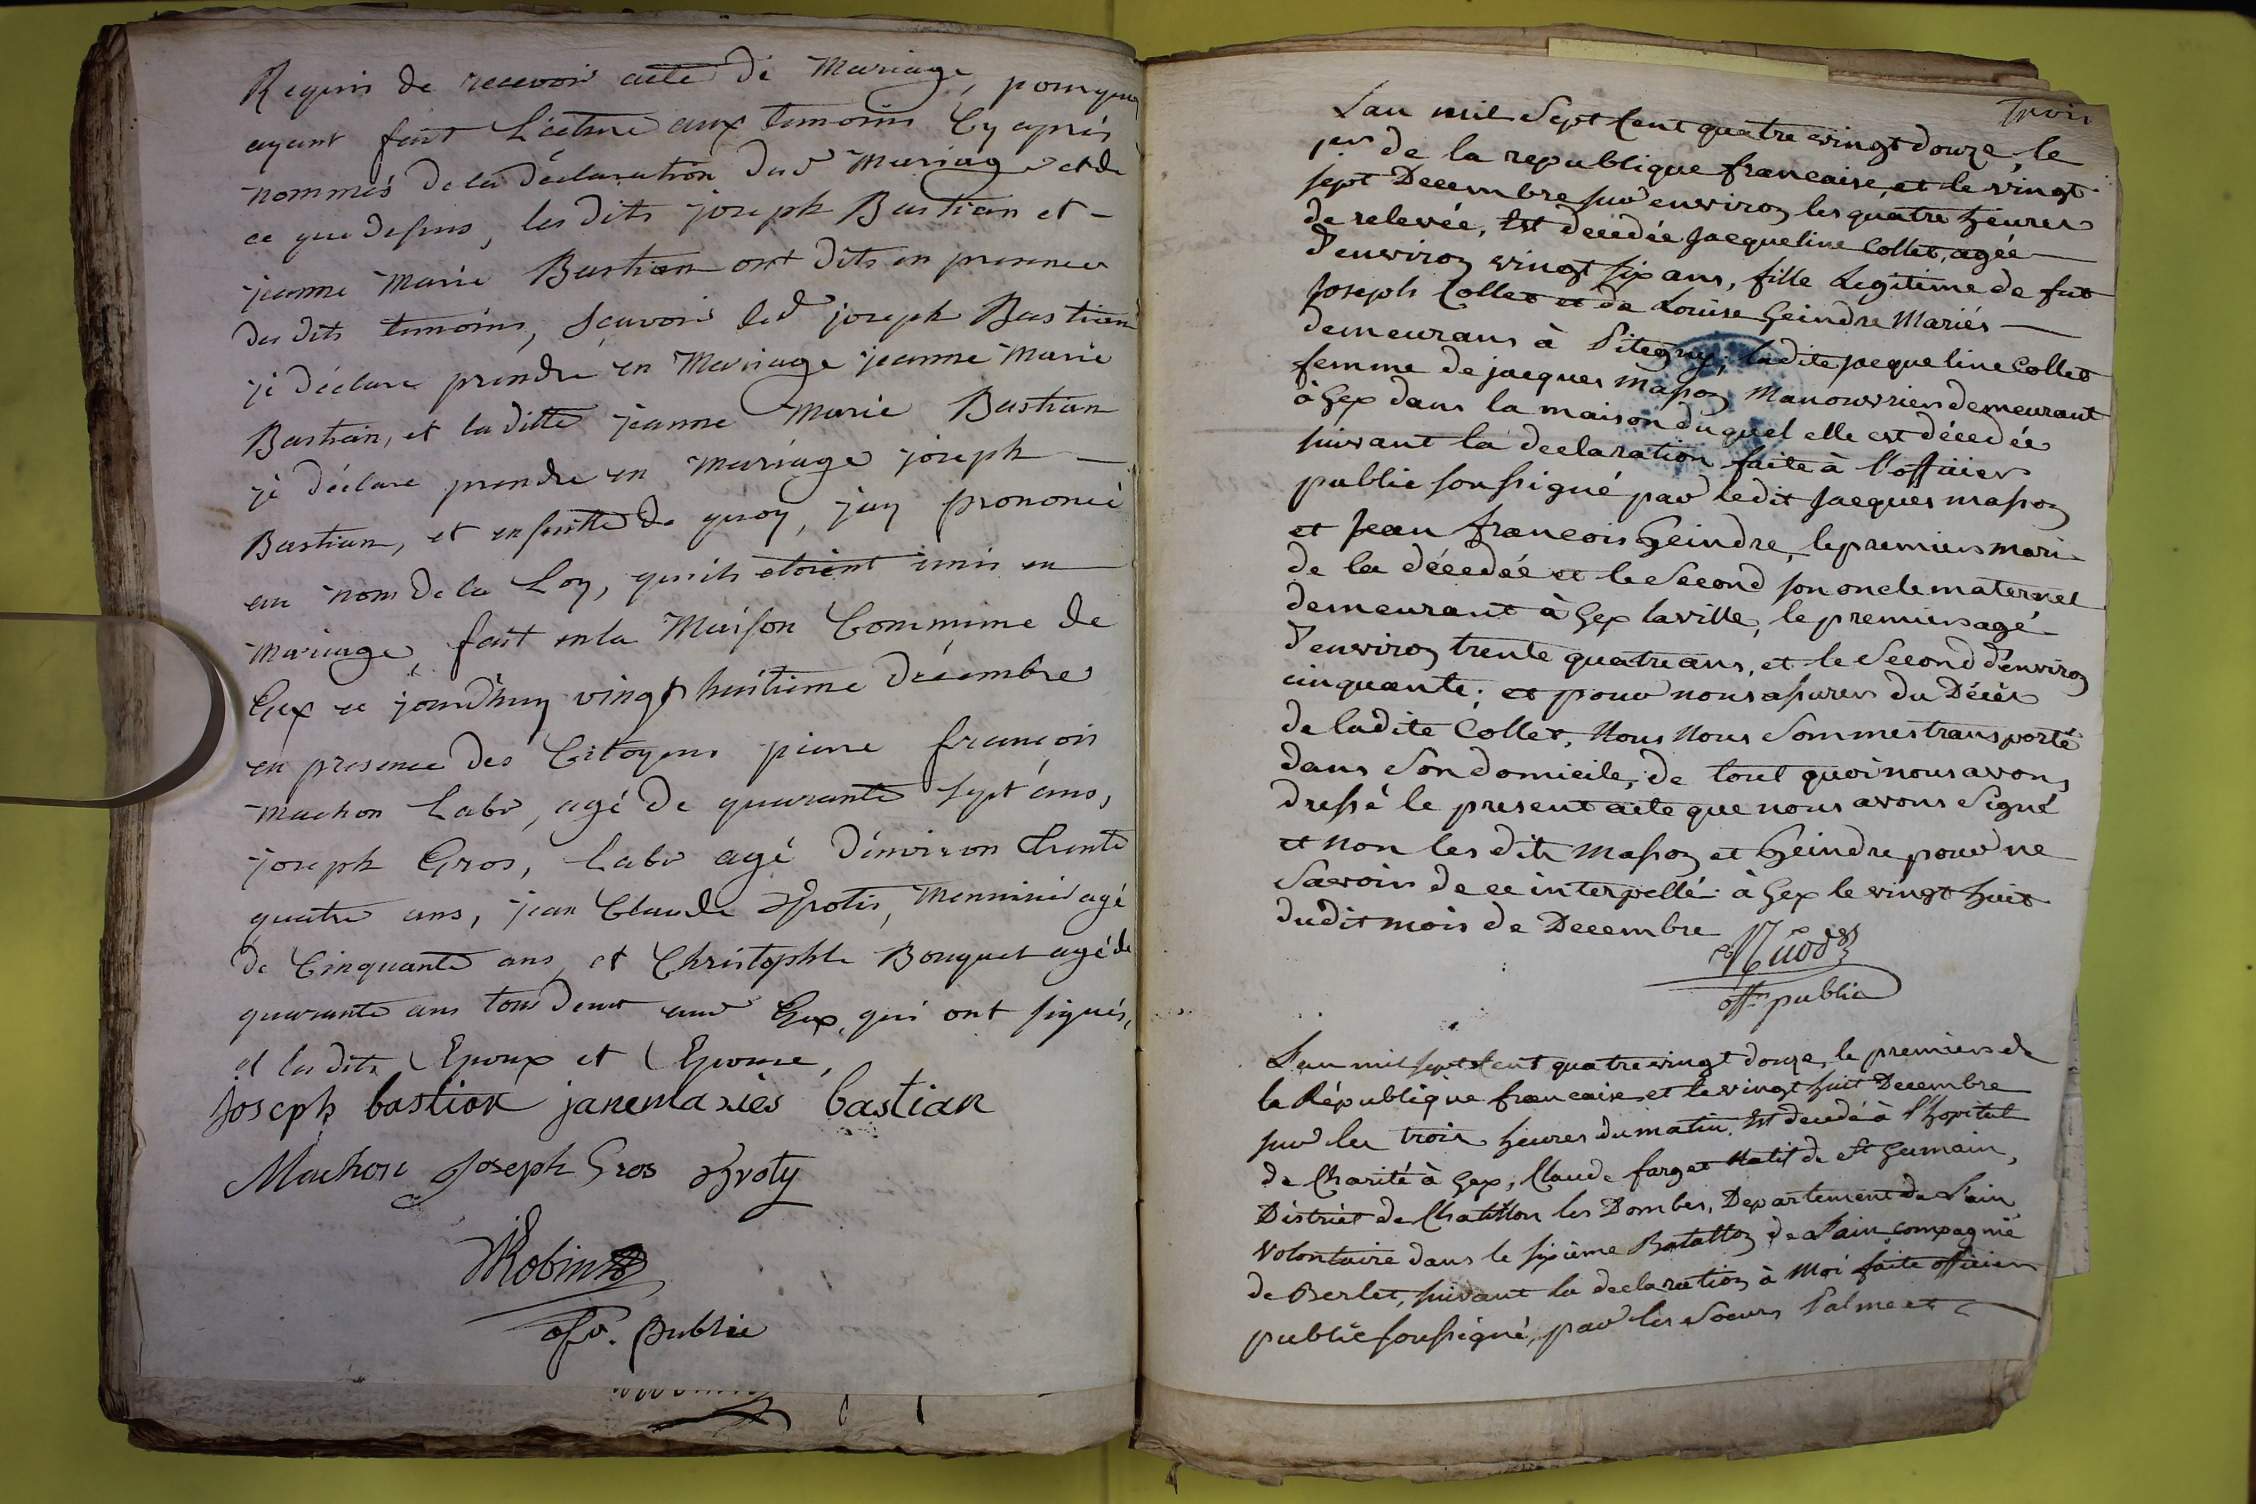 Requis de recevoir acte de Mariage, pourquoy
ayant fait Lecture aux temoins Cy après
nommés de la déclaration dud Mariage et de
ce que dessus, les dits joseph Bastian et -
jeanne Marie Bastian ont dits en presence
des dits temoins, sçavoir led joseph Bastian
je déclare prendre en Mariage jeanne Marie
Bastian, et la ditte jeanne Marie Bastian
je déclare prendre en mariage joseph -
Bastian, et ensuitte de quoy, jay prononcé
au nom de la Loy, qu'ils etoient unis en
mariage, fait en la Maison Commune de
Gex ce jourdhuy vingt huitieme décembre
en presence des Citoyens pierre françois
machon labr, agé de quarante sept ans,
joseph Gros, labr agé d'environ trente
quatre ans, jean Claude Menuisié agé
de Cinquante ans, et Christophle Bouquet agé de
quarante ans tous demt aud Gex, qui ont signés,
et les dits Epoux et Epouse,
joseph bastian janemaries bastian
Machon Joseph Gros
Robin
offr. Public
trois
L'an mil Sept Cent quatre vingt douze, le
per de la republique francaise, et le vingt
sept Decembre sur environ les quatre heures
de relevée, Est decedée Jacqueline Collet, agée -
d'environ vingt six ans, fille Legitime de fut
Joseph Collet et de Louise Geindre Mariés -
demeurans à Pitegny; ladite jacqueline Collet
femme de jacques Masson Manouvrier demeurant
à Gex dans la maison duquel elle est décedée
suivant la declaration faite à l'officier
public soussigné par ledit Jacques masson
et Jean francois Geindre, le premier mari
de la décedée et le Second son oncle maternel
demeurant à Gex la ville, le premier agé
d'environ trente quatre ans, et le Second d'environ
cinquante; et pour nous assurer du Décès
de ladite Collet, Nous Nous Sommes transporté
dans Son domicile, de tout quoi nous avons
dressé le present acte que nous avons Signé
et non les dits Masson et Geindre pour ne
Savoir de ce interpellé à Gex le vingt huit
dudit mois de Decembre
offr public
L'an mil sept Cent quatre vingt douze, le premier de
la République francaise et le vingt huit Decembre
sur les trois heures du matin, Est decedé à l'hopital
de Charité à Gex, Claude farget Natif de St Germain,
District de Chatillon les Dombes, Departement de L'ain
Volontaire dans le sixième Batallon de L'ain compagnie
de Berlet, suivant la declaration à Moi faite officier
public soussigné, par les Soeurs Palme et -